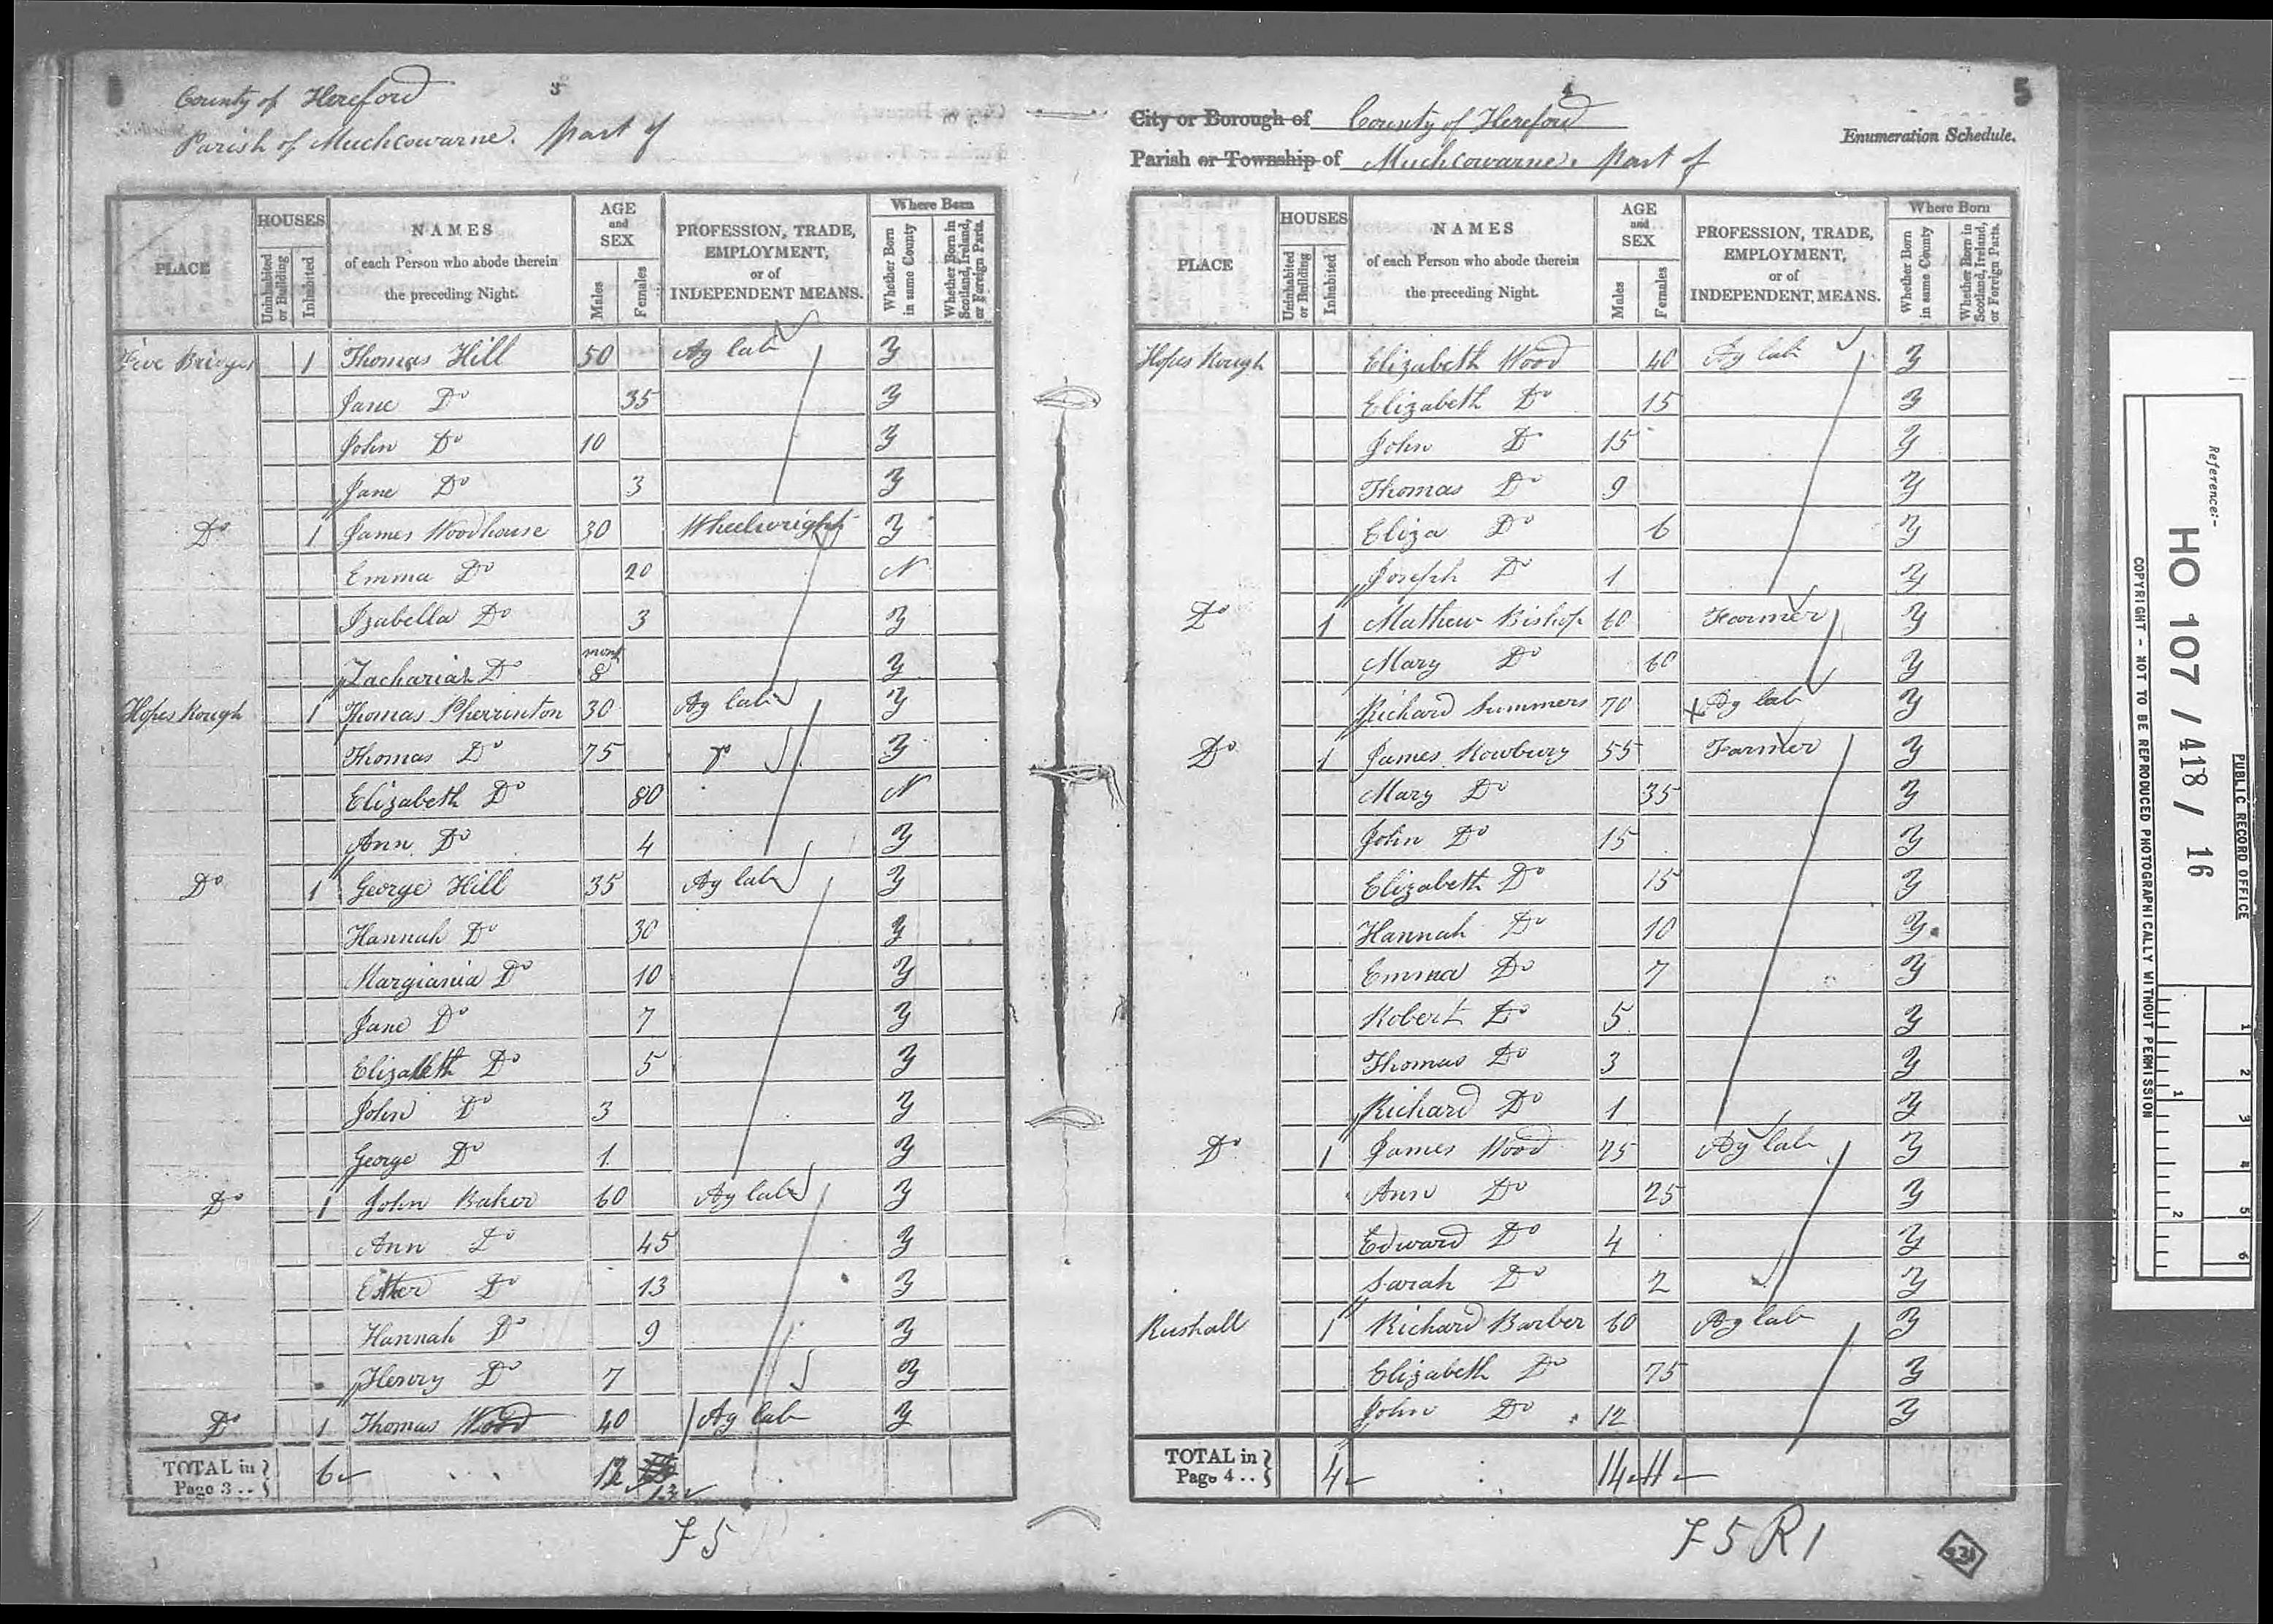 3
County of Hereford
Parish of Muchcowarne. Part of
PLACE
HOUSES
Uninhabited or Building
Inhabited
NAMES
of each Person who abode therein
the preceding Night.
AGE
and
SEX
Males
Females
PROFESSION, TRADE,
EMPLOYMENT,
or of
INDEPENDENT MEANS.
Where Born
Whether Born in same County
Whether Born in Scotland, Ireland, or Foreign Parts.
Five Bridges 1 Thomas Hill 50 Ag lab Y
Jane Do 35 Y
John Do 10 Y
Jane Do 3 Y
Do 1 James Woodhouse 30 Wheelwright Y
Emma Do 20 N
Izabella Do 3 Y
Zachariah Do 8 mont Y
Hopes Rough 1 Thomas Pherrinton 30 Ag lab Y
Thomas Do 75 Do Y
Elizabeth Do 80 N
Ann Do 4 Y
Do 1 George Hill 35 Ag lab Y
Hannah Do 30 Y
Margiania Do 10 Y
Jane Do 7 Y
Elizabeth Do 5 Y
John Do 3 Y
George Do 1 Y
Do 1 John Baker 60 Ag lab Y
Ann Do 45 Y
Esther Do 13 Y
Hannah Do 9 Y
Henry Do 7 Y
Do 1 Thomas Wood 40 Ag lab Y
TOTAL in Page 3 .. 6 12 13
F 5
4
5
City or Borough of County of Hereford
Enumeration Schedule.
Parish or Township of Muchcowarne. Part of
PLACE
HOUSES
Uninhabited or Building
Inhabited
NAMES
of each Person who abode therein
the preceding Night.
AGE
and
SEX
Males
Females
PROFESSION, TRADE,
EMPLOYMENT,
or of
INDEPENDENT MEANS.
Where Born
Whether Born in same County
Whether Born in Scotland, Ireland, or Foreign Parts.
Hopes Rough Elizabeth Wood 40 Ag lab Y
Elizabeth Do 15 Y
John Do 15 Y
Thomas Do 9 Y
Eliza Do 6 Y
Joseph Do 1 Y
Do 1 Mathew Bishop 60 Farmer Y
Mary Do 60 Y
Richard Summers 70 Ag lab Y
Do 1 James Rowbury 55 Farmer Y
Mary Do 35 Y
John Do 15 Y
Elizabeth Do 15 Y
Hannah Do 10 Y
Emma Do 7 Y
Robert Do 5 Y
Thomas Do 3 Y
Richard Do 1 Y
Do 1 James Wood 25 Ag lab Y
Ann Do 25 Y
Edward Do 4 Y
Sarah Do 2 Y
Rushall 1 Richard Barber 60 Ag lab Y
Elizabeth Do 75 Y
John Do 12 Y
TOTAL in Page 4 .. 4 14 11
F 5 R 1
PUBLIC RECORD OFFICE
Reference:-
HO 107 / 418 / 16
COPYRIGHT - NOT TO BE REPRODUCED PHOTOGRAPHICALLY WITHOUT PERMISSION
1 2 3 4 5 6
1 2